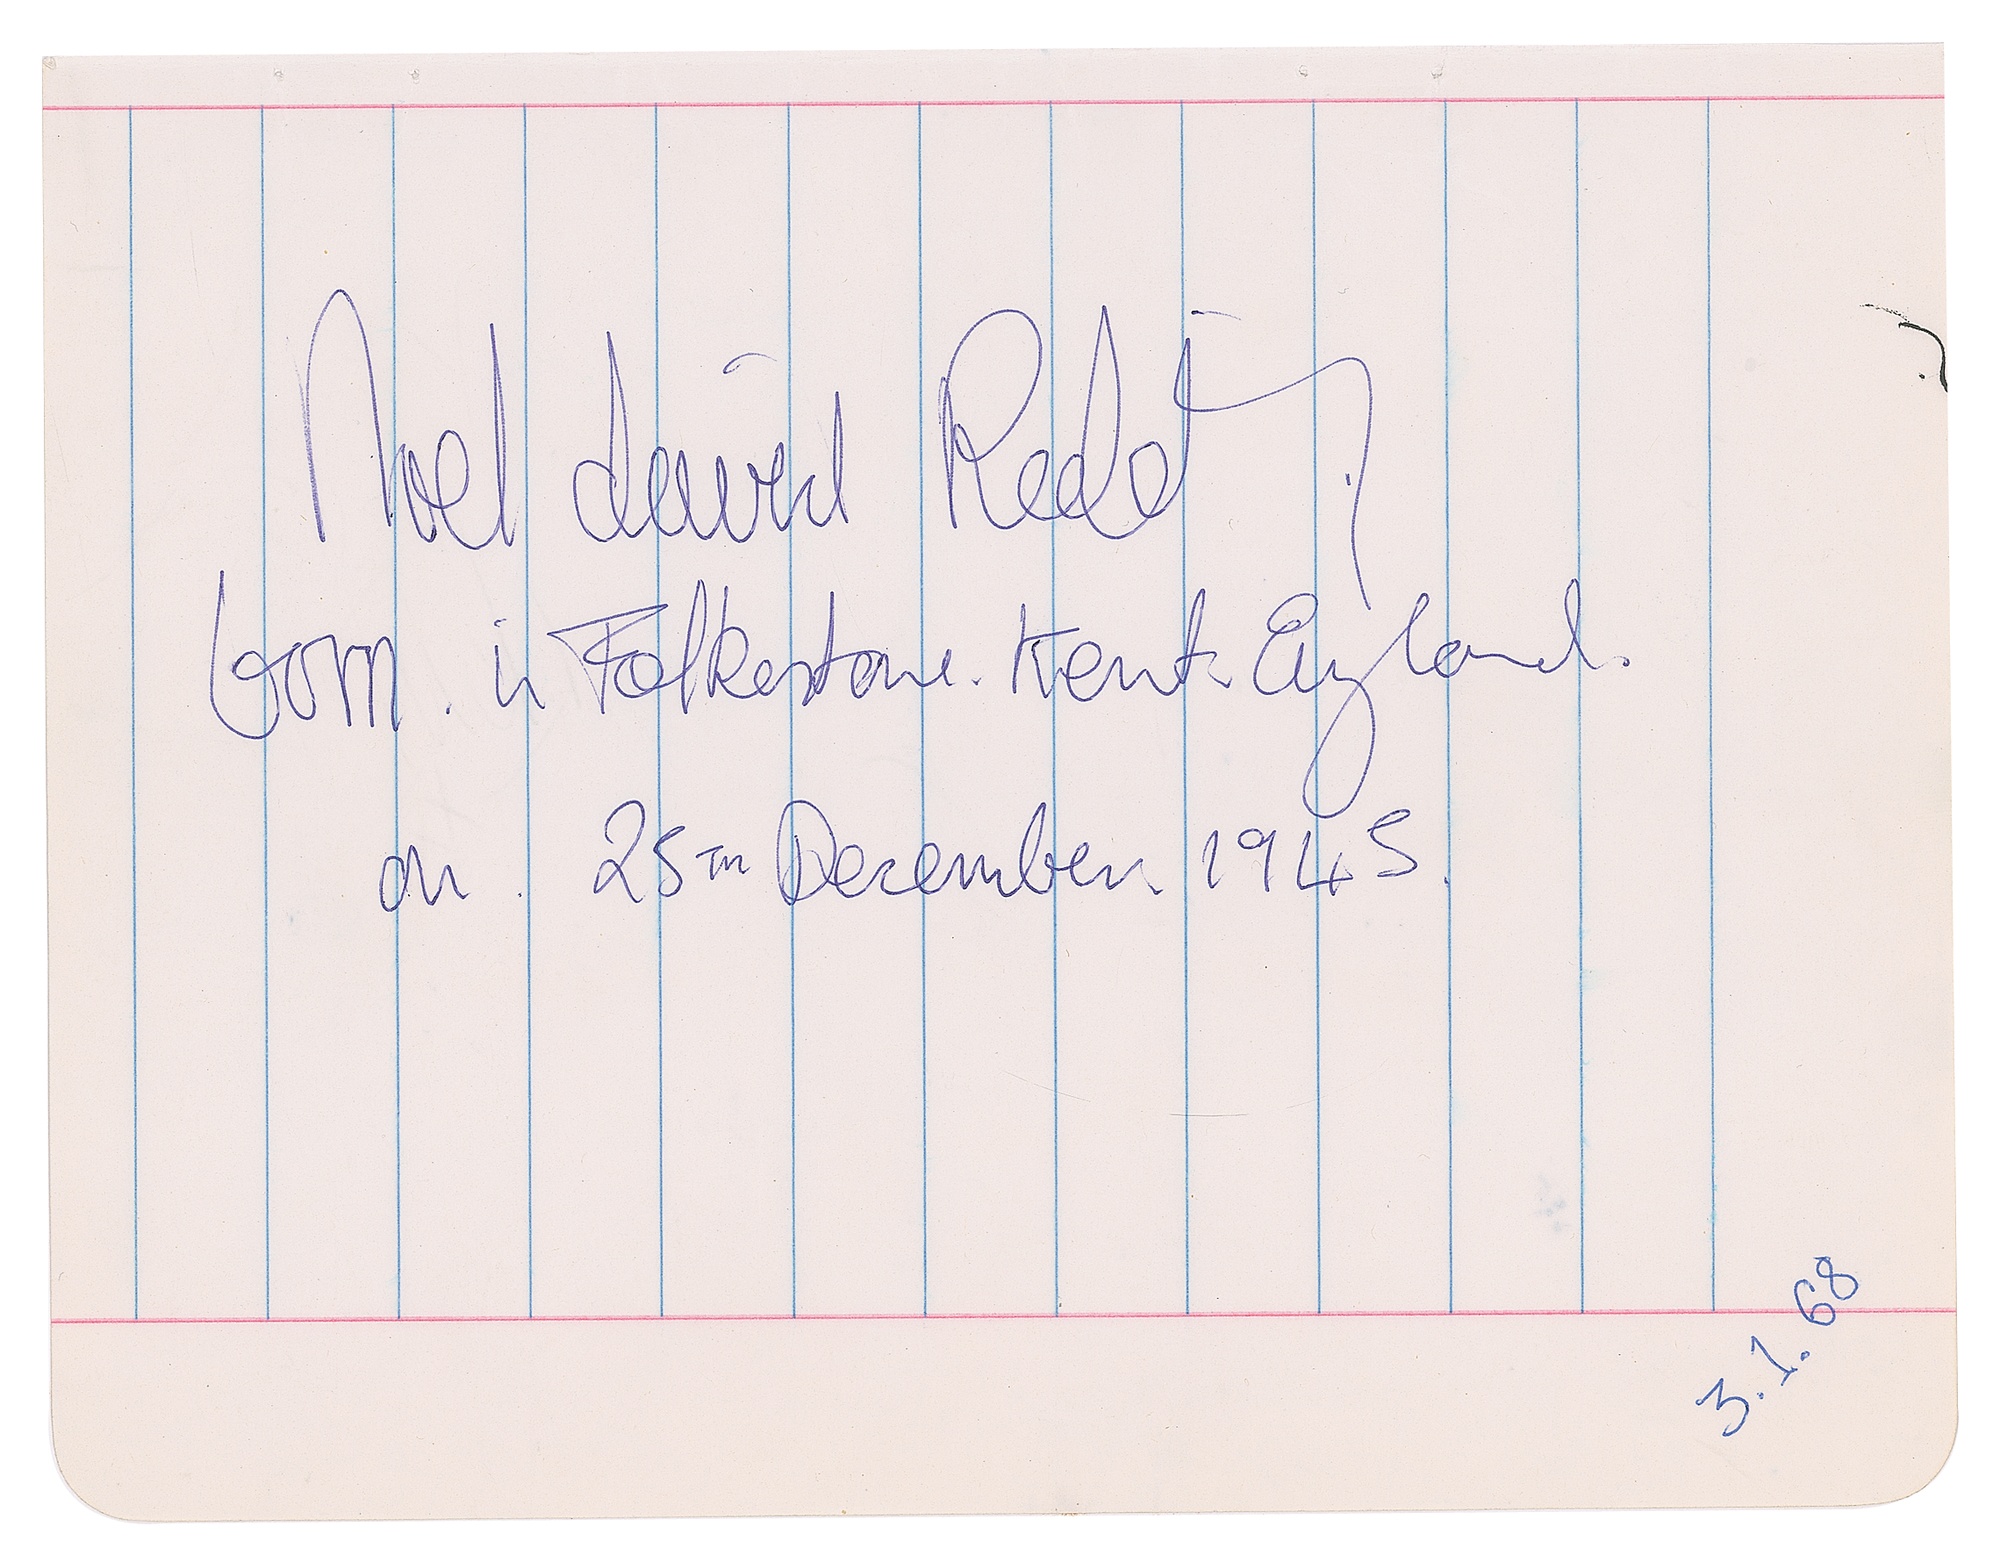 Noel david Redding
born. in Folkestone. Kent. England.
on. 25TH December 1945.
3.1.68